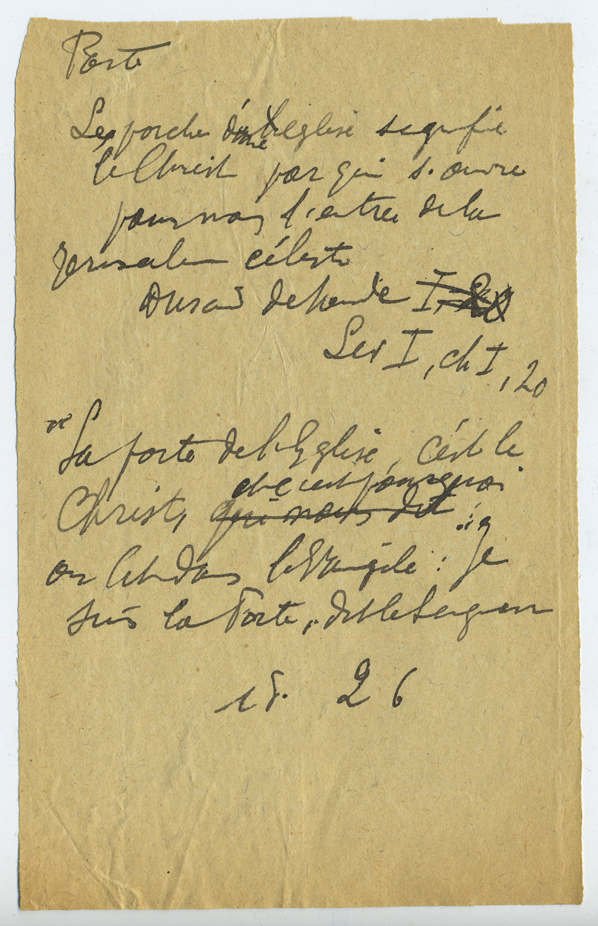 Porte
Le porche d'une église signifie
le Christ par qui s'ouvre
pour nous l'entrée de la
Jerusalem céleste
Durand de Mende I,
Liv I, ch I, 20
La porte de l'Eglise, c'est le
et c'est pourquoi
Christ, qui nous dit
on lit dans l'Evangile : Je
suis la Porte, dit le Seigneur
id. 26